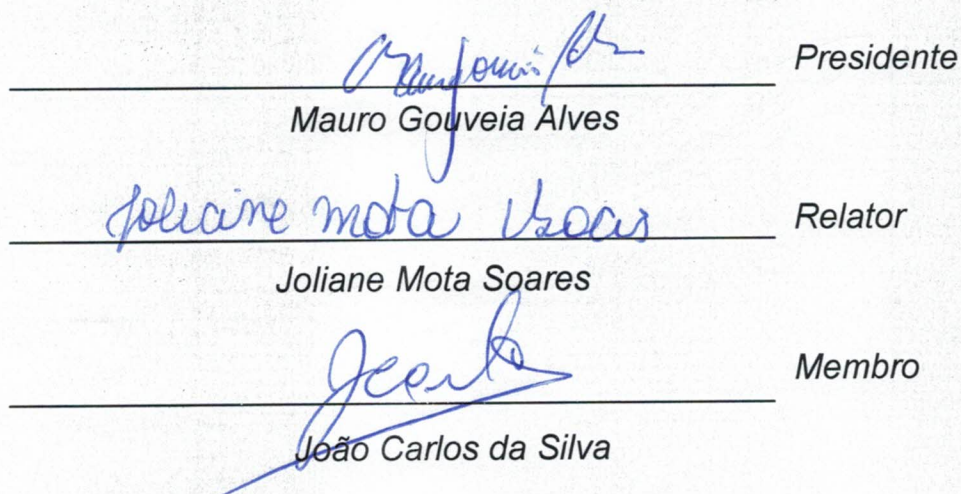 Presidente
Mauro Gouveia Alves
Joliane Mota Soares
Relator
Joliane Mota Soares
Membro
João Carlos da Silva